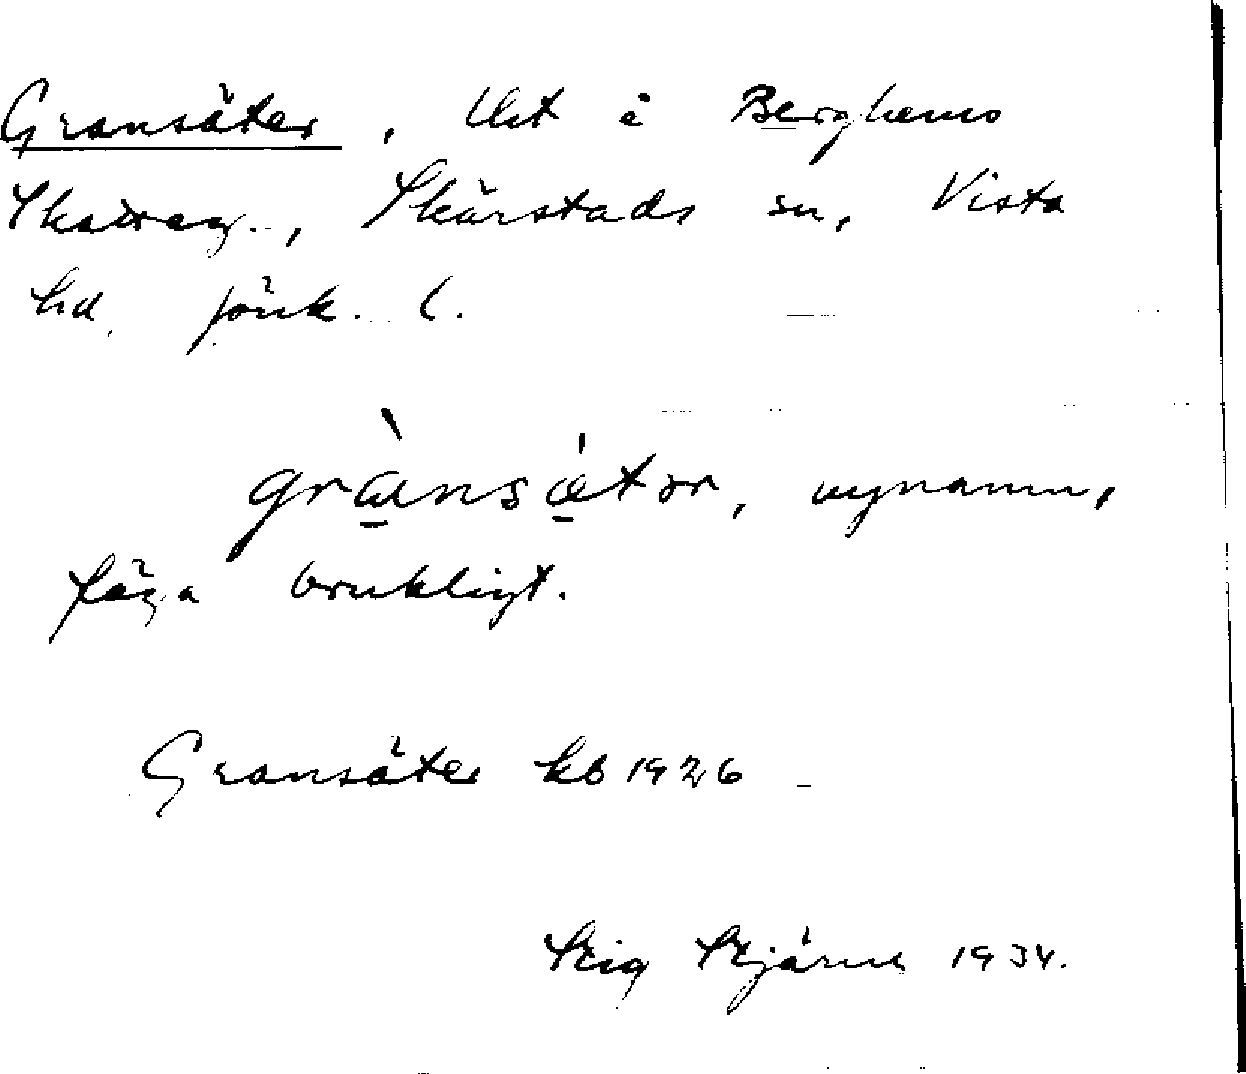 Gransäter, Uet i Berghems
Skatteg., Skärstads sn, Vista
hd. Jönk. l.
grànsá̱tər, nynamn,
föga brukligt.
Gransäter kb 1926
Stig Stjärne 1934.